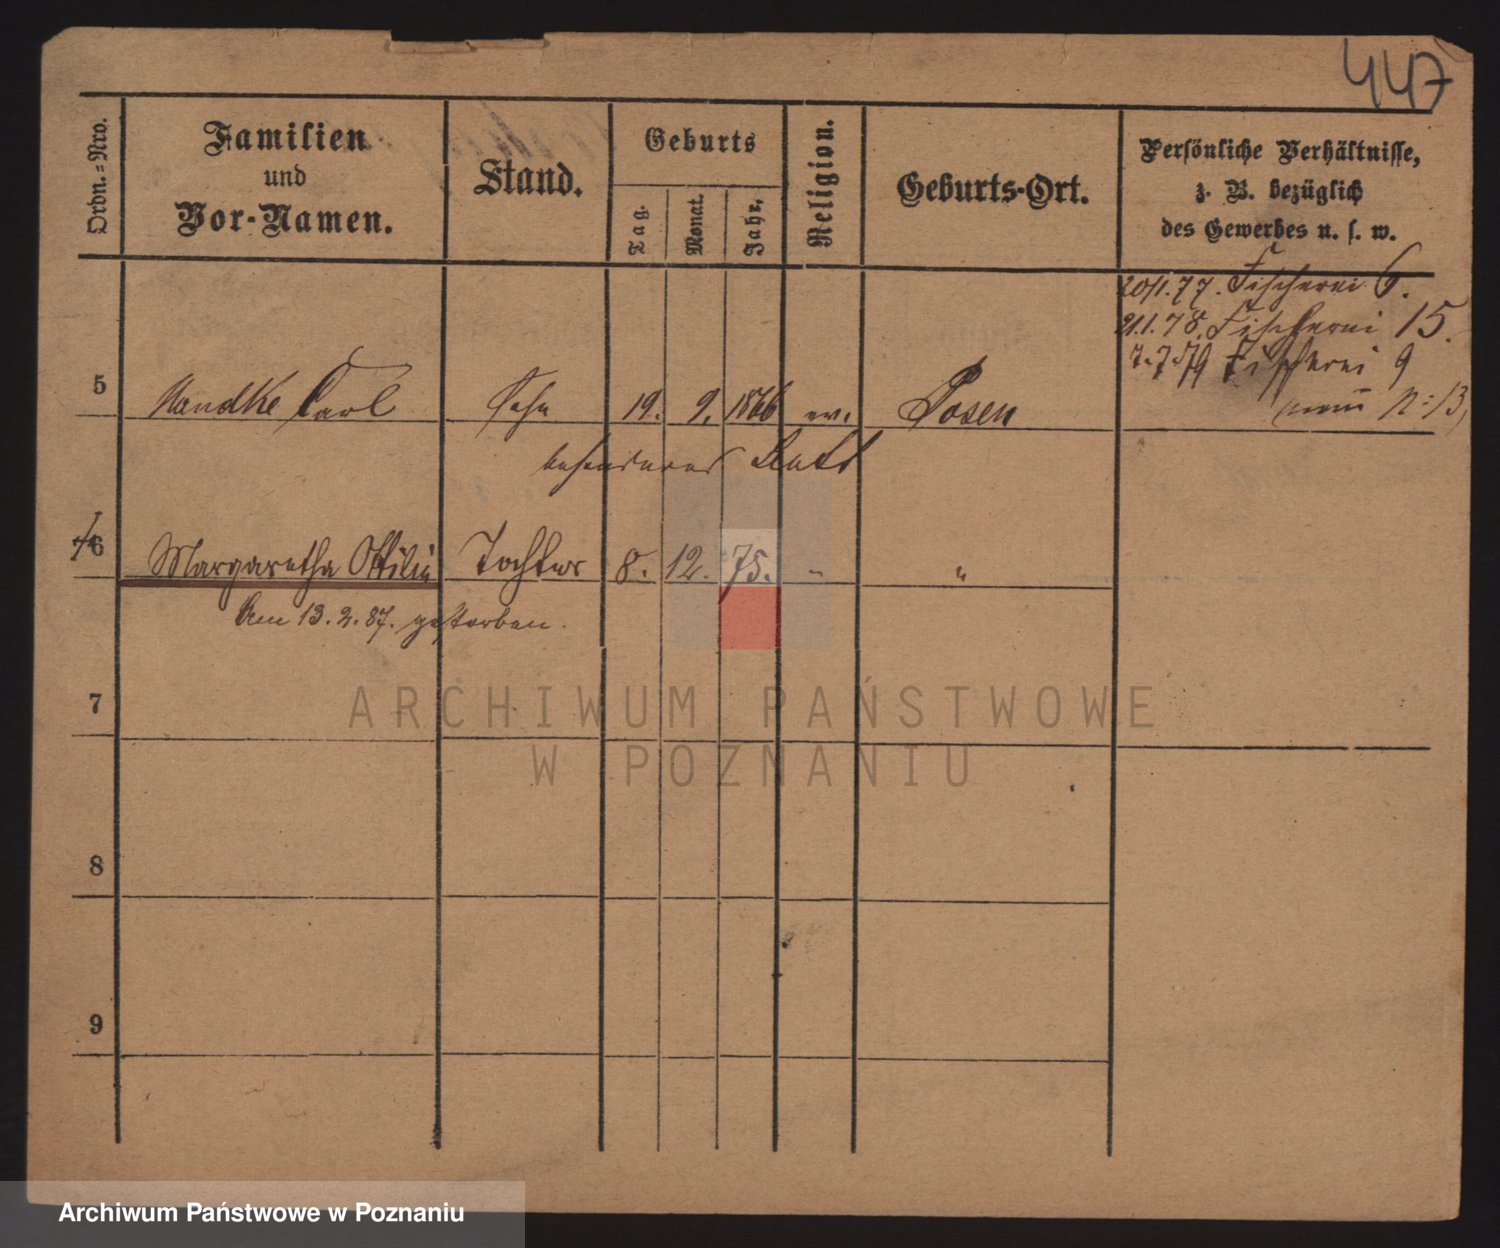 447
Ordn.=Nro.
Familien
und
Vor-Namen.
Stand.
Geburts
Tag.
Monat.
Jahr.
Religion.
Geburts-Ort.
Persönliche Verhältnisse,
z. B. bezüglich
des Gewerbes u. s. w.
20/1.77. Fischerei 6.
21.1.78. Fischerei 15.
7.7.79 Fischerei 9
neue N: 13,
5 Handke Carl Sohn 19. 9. 1866 ev. Posen
besonderes Blatt
6 Margaretha Ottilie Tochter 8. 12. 75. " "
Am 13.2.87. gestorben.
7
8
9
ARCHIWUM PAŃSTWOWE
W POZNANIU
Archiwum Państwowe w Poznaniu